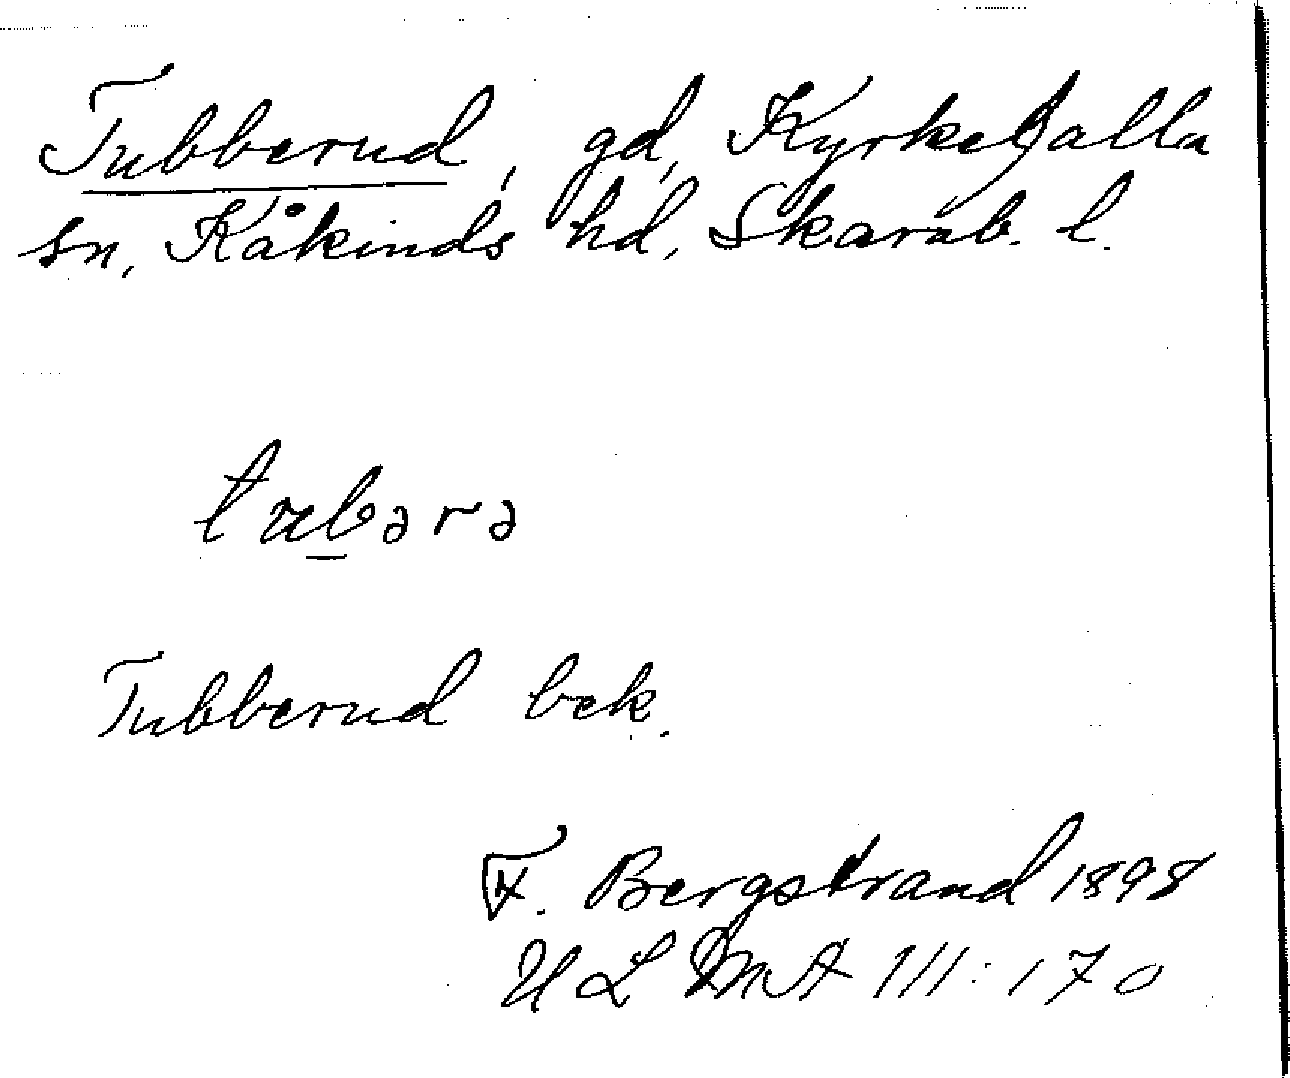 Tubberud, gd, Kyrkefalla
sn, Kåkinds hd, Skarab. l.
tubərə
Tubberud bek.
F. Bergstrand 1898
ULMA 111:170